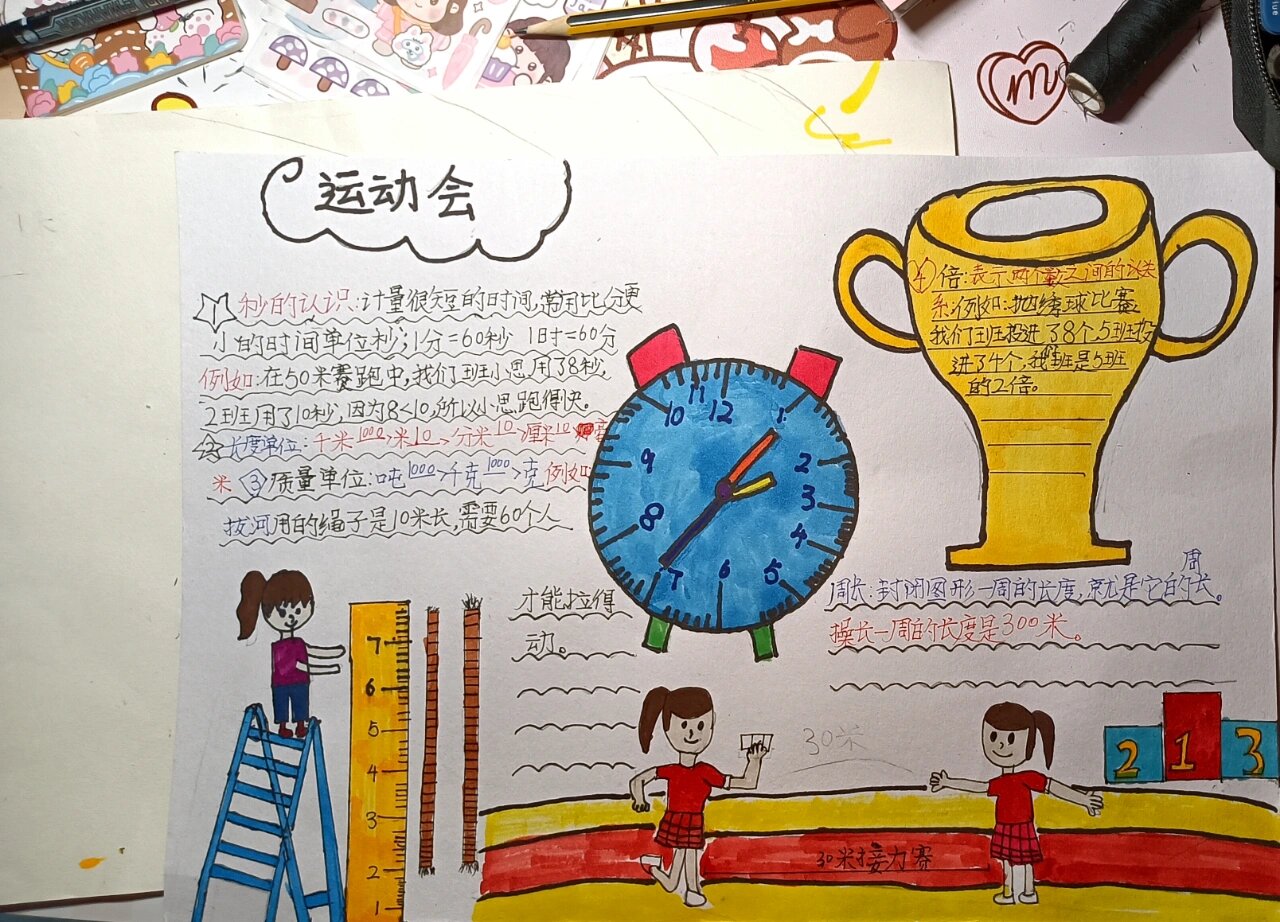 运动会
1 秒的认识:计量很短的时间,常用比分更
小的时间单位秒;1分=60秒 1时=60分
例如:在50米赛跑中,我们班小思用了8秒,
2班用了10秒,因为8<10,所以小思跑得快。
② 长度单位:千米 1000 米 10 分米 10 厘米 10 毫
米 ③ 质量单位:吨 1000 千克 1000 克 例如:
拔河用的绳子是10米长,需要60个人
才能拉得
动。
④ 倍:表示两个数之间的关
系:例如:抛绣球比赛
我们班投进了8个,5班投
进了4个,我们班是5班
的2倍。
11 12 1
10 2
9 3
8 4
7 6 5
周
周长:封闭图形一周的长度,就是它的长。
操长一周的长度是300米。
7
6
5
4
3
2
1
30米
2 1 3
30米接力赛
m